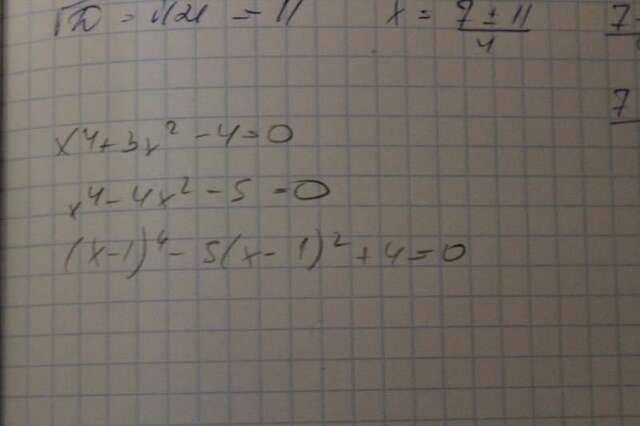 √D = √121 = 11 x = 7 ± 11 / 4 7
7
x⁴ + 3x² - 4 = 0
x⁴ - 4x² - 5 = 0
(x - 1)⁴ - 5(x - 1)² + 4 = 0